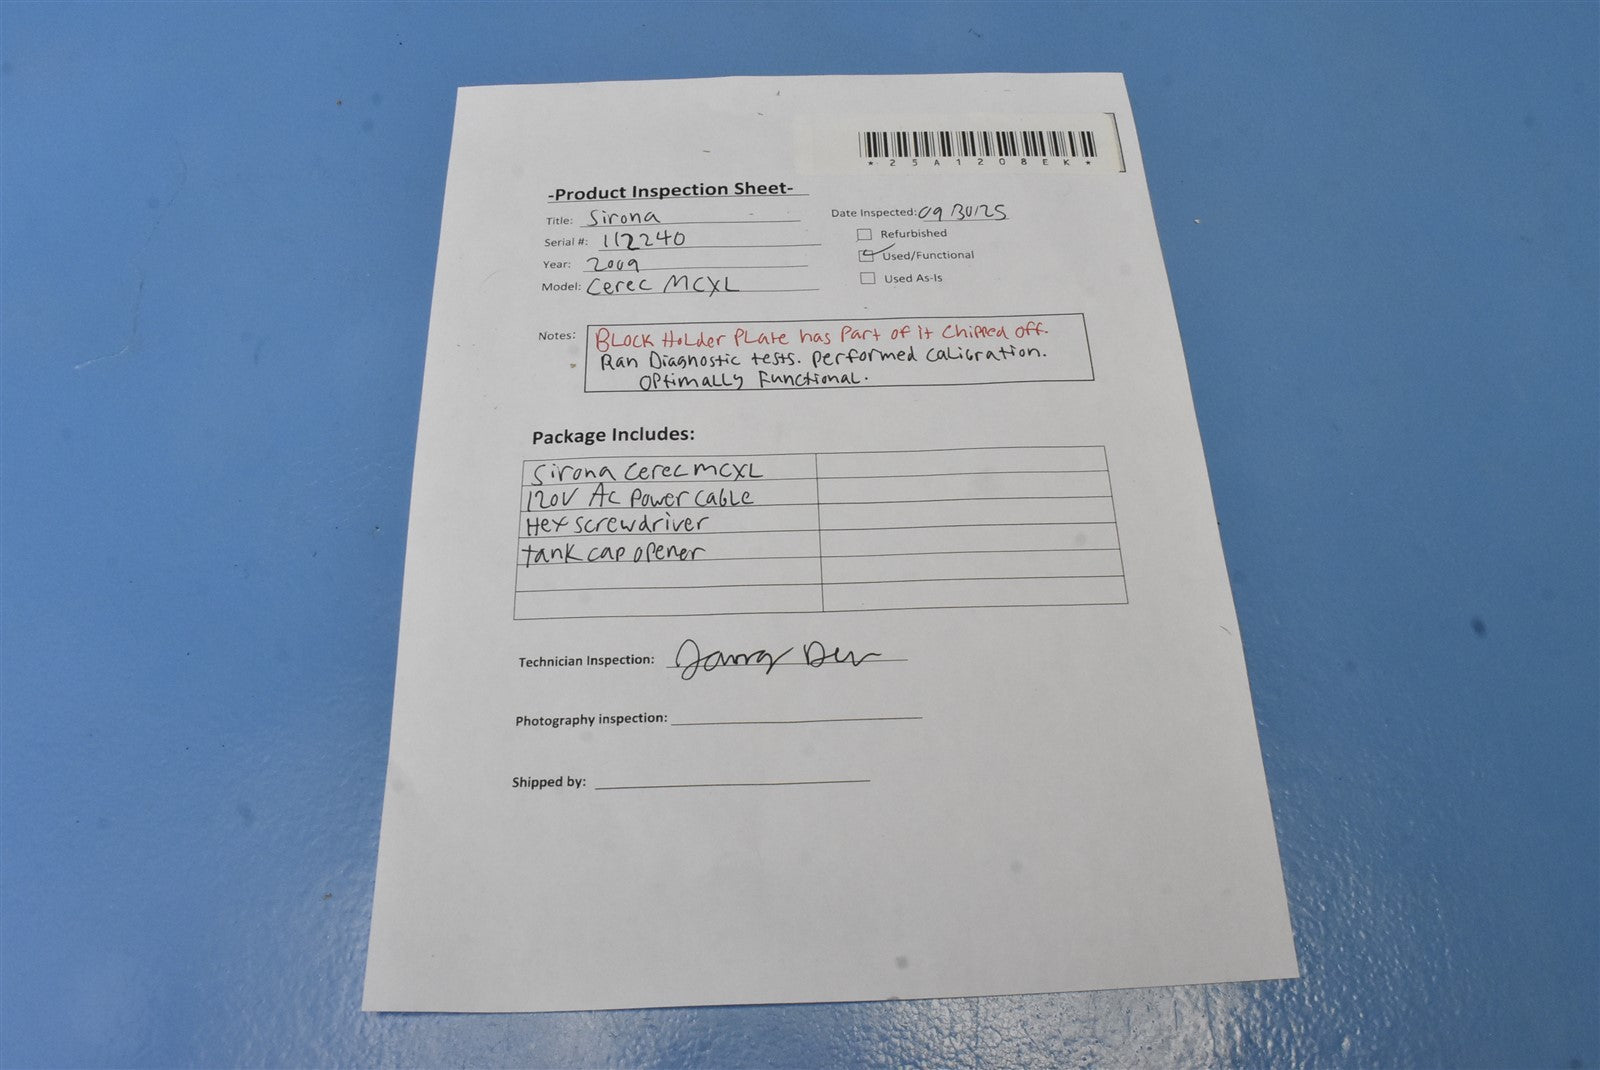 *25A1208EK*
-Product Inspection Sheet-
Title: Sirona
Date Inspected: 09/30/25
Serial #: 112240
Refurbished
Year: 2009
Used/Functional
Model: Cerec MCXL
Used As-Is
Notes: Block Holder Plate has Part of it Chipped off.
Ran Diagnostic tests. Performed calibration.
Optimally Functional.
Package Includes:
Sirona Cerec MCXL
120V AC Power Cable
Hex screwdriver
tank cap opener
Technician Inspection:
Photography inspection:
Shipped by: